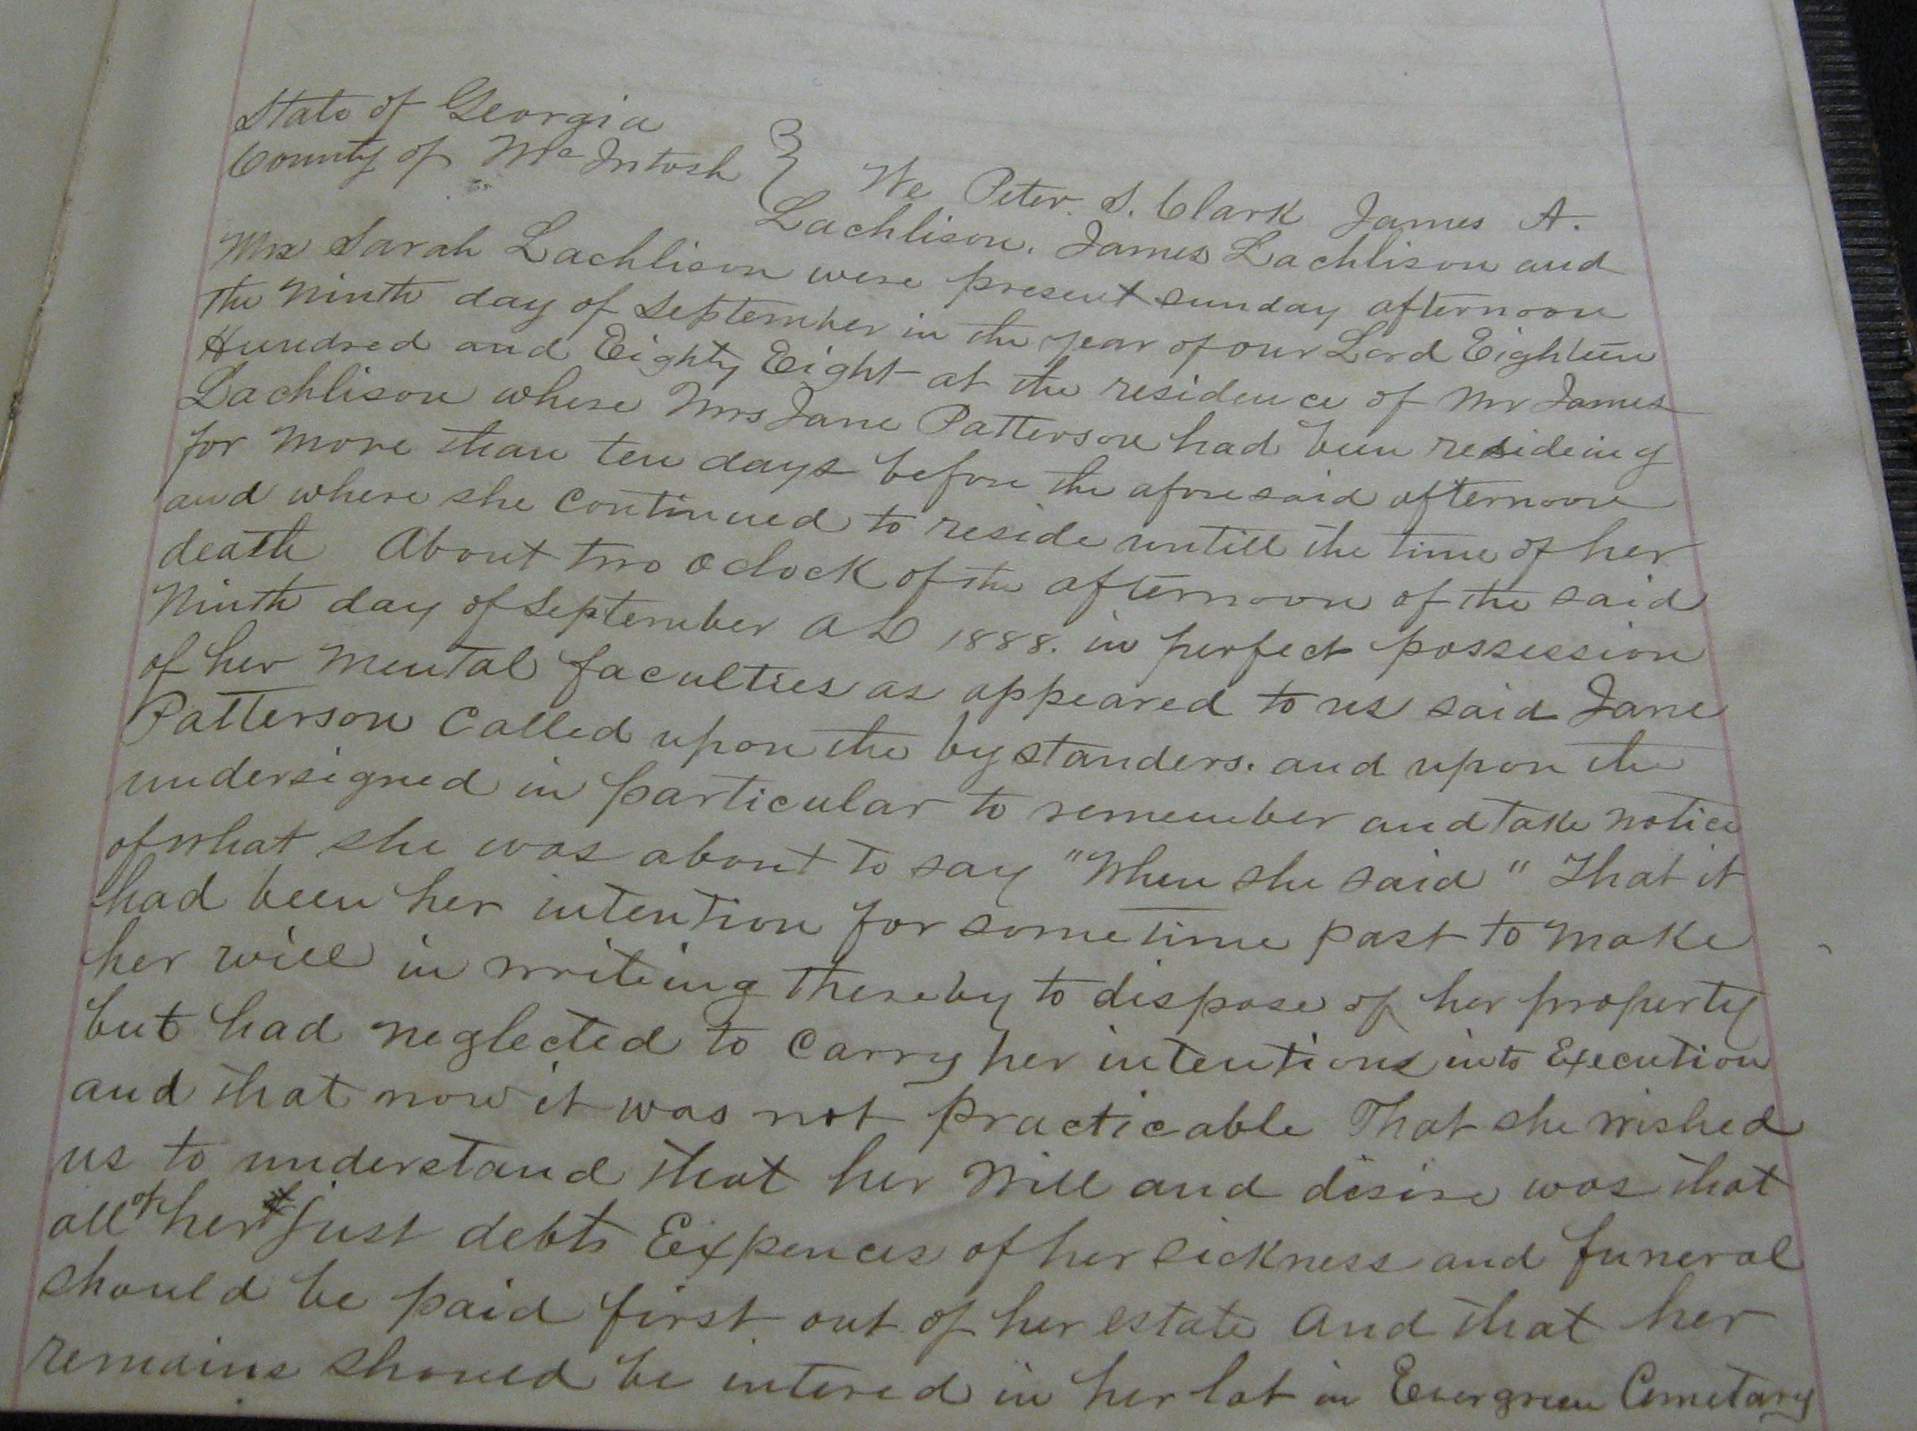 State of Georgia
County of McIntosh } We Peter. S. Clark James A.
Lachlison. James Lachlison and
Mrs Sarah Lachlison were present sunday afternoon
the ninth day of September in the year of our Lord Eighteen
Hundred and Eighty Eight at the residence of Mr James
Lachlison where Mrs Jane Patterson had been residing
for more than ten days before the aforesaid afternoon
and where she continued to reside untill the time of her
death About two oclock of the afternoon of the said
Ninth day of September A D 1888. in perfect possession
of her mental faculties as appeared to us said Jane
Patterson called upon the bystanders. and upon the
undersigned in particular to remember and take notice
of what she was about to say "When she said" That it
had been her intention for sometime past to make
her will in writeing thereby to dispose of her property
but had neglected to carry her intentions into Execution
and that now it was not practicable That she wished
us to understand that her Will and desire was that
all of her just debts Expences of her sickness and funeral
should be paid first out of her estate And that her
remains should be intered in her lot in Evergreen Cemetary